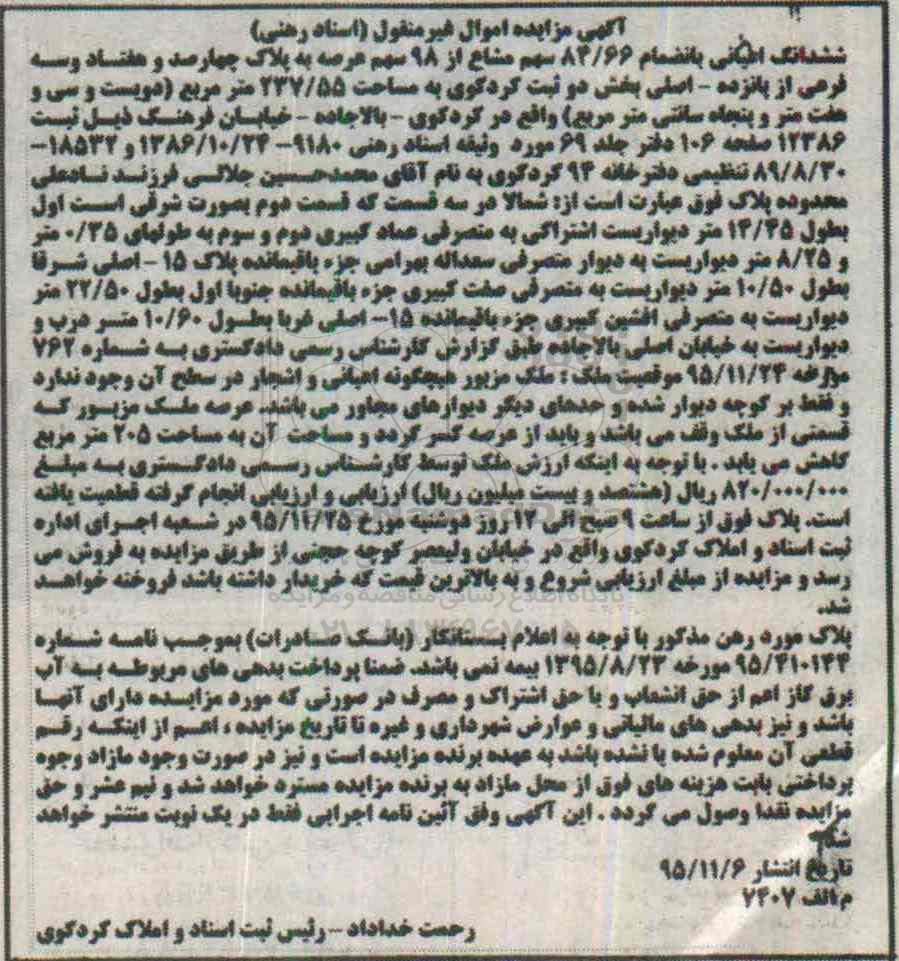 آگهی مزایده اموال غیر منقول (اسناد رهنی)
ششدانگ اعیانی بانضمام ۸۴/۶۶ سهم مشاع از ۹۸ سهم عرصه به پلاک چهارصد و هفتاد وسه
فرعی از پانزده - اصلی بخش دو ثبت کردکوی به مساحت ۲۳۷/۵۵ متر مربع (دویست و سی و
هفت متر و پنجاه سانتی متر مربع) واقع در کردکوی - بالاجاده - خیابان فرهنگ ذیل ثبت
۱۲۳۸۶ صفحه ۱۰۶ دفتر جلد ۶۹ مورد وثیقه اسناد رهنی ۹۱۸۰- ۱۳۸۶/۱۰/۲۴ و ۱۸۵۳۲-
۸۹/۸/۳۰ تنظیمی دفترخانه ۹۴ کردکوی به نام آقای محمدحسین جلالی فرزند نادعلی
محدوده پلاک فوق عبارت است از: شمالا در سه قسمت که قسمت دوم بصورت شرقی است اول
بطول ۱۴/۴۵ متر دیواریست اشتراکی به متصرفی عماد کبیری دوم و سوم به طولهای ۰/۳۵ متر
و ۸/۲۵ متر دیواریست به دیوار متصرفی سعداله بهرامی جزء باقیمانده پلاک ۱۵ -اصلی شرقا
بطول ۱۰/۵۰ متر دیواریست به متصرفی صفت کبیری جزء باقیمانده جنوبا اول بطول ۲۲/۵۰ متر
دیواریست به متصرفی افشین کبیری جزء باقیمانده ۱۵- اصلی غربا بطول ۱۰/۶۰ متر درب و
دیواریست به خیابان اصلی بالاجاده طبق گزارش کارشناس رسمی دادگستری به شماره ۷۶۲
مورخه ۹۵/۱۱/۲۴ موقعیت ملک : ملک مزبور هیچگونه اعیانی و اشجار در سطح آن وجود ندارد
و فقط بر کوچه دیوار شده و حدهای دیگر دیوارهای مجاور می باشد. عرصه ملک مزبور که
قسمتی از ملک وقف می باشد و باید از عرصه کسر گردد و مساحت آن به مساحت ۲۰۵ متر مربع
کاهش می یابد . با توجه به اینکه ارزش ملک توسط کارشناس رسمی دادگستری به مبلغ
۸۲۰/۰۰۰/۰۰۰ ریال (هشتصد و بیست میلیون ریال) ارزیابی و ارزیابی انجام گرفته قطعیت یافته
است. پلاک فوق از ساعت ۹ صبح الی ۱۲ روز دوشنبه مورخ ۹۵/۱۱/۲۵ در شعبه اجرای اداره
ثبت اسناد و املاک کردکوی واقع در خیابان ولیعصر کوچه حجتی از طریق مزایده به فروش می
رسد و مزایده از مبلغ ارزیابی شروع و به بالاترین قیمت که خریدار داشته باشد فروخته خواهد
شد.
پلاک مورد رهن مذکور با توجه به اعلام بستانکار (بانک صادرات) بموجب نامه شماره
۹۵/۴۱۰۱۴۴ مورخه ۱۳۹۵/۸/۲۳ بیمه نمی باشد. ضمنا پرداخت بدهی های مربوطه به آب
برق گاز اعم از حق انشعاب و یا حق اشتراک و مصرف در صورتی که مورد مزایده دارای آنها
باشد و نیز بدهی های مالیاتی و عوارض شهرداری و غیره تا تاریخ مزایده ، اعم از اینکه رقم
قطعی آن معلوم شده یا نشده باشد به عهده برنده مزایده است و نیز در صورت وجود مازاد وجوه
پرداختی بابت هزینه های فوق از محل مازاد به برنده مزایده مسترد خواهد شد و نیم عشر و حق
مزایده نقدا وصول می گردد . این آگهی وفق آئین نامه اجرایی فقط در یک نوبت منتشر خواهد
شد
تاریخ انتشار ۹۵/۱۱/۶
م الف ۷۴۰۷
رحمت خداداد - رئیس ثبت اسناد و املاک کردکوی